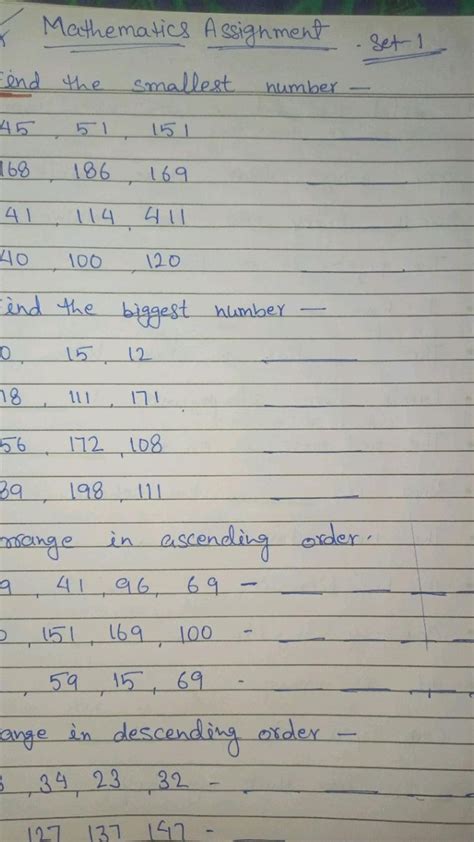 Mathematics Assignment . Set-1
Find the smallest number —
45, 51, 151
168, 186, 169
41, 114, 411
40, 100, 120
Find the biggest number —
0, 15, 12
18, 111, 171
56, 172, 108
89, 198, 111
arrange in ascending order.
9, 41, 96, 69 —
0, 151, 169, 100 -
, 59, 15, 69 -
ange in descending order —
3, 34, 23, 32 -
127 137 147 -